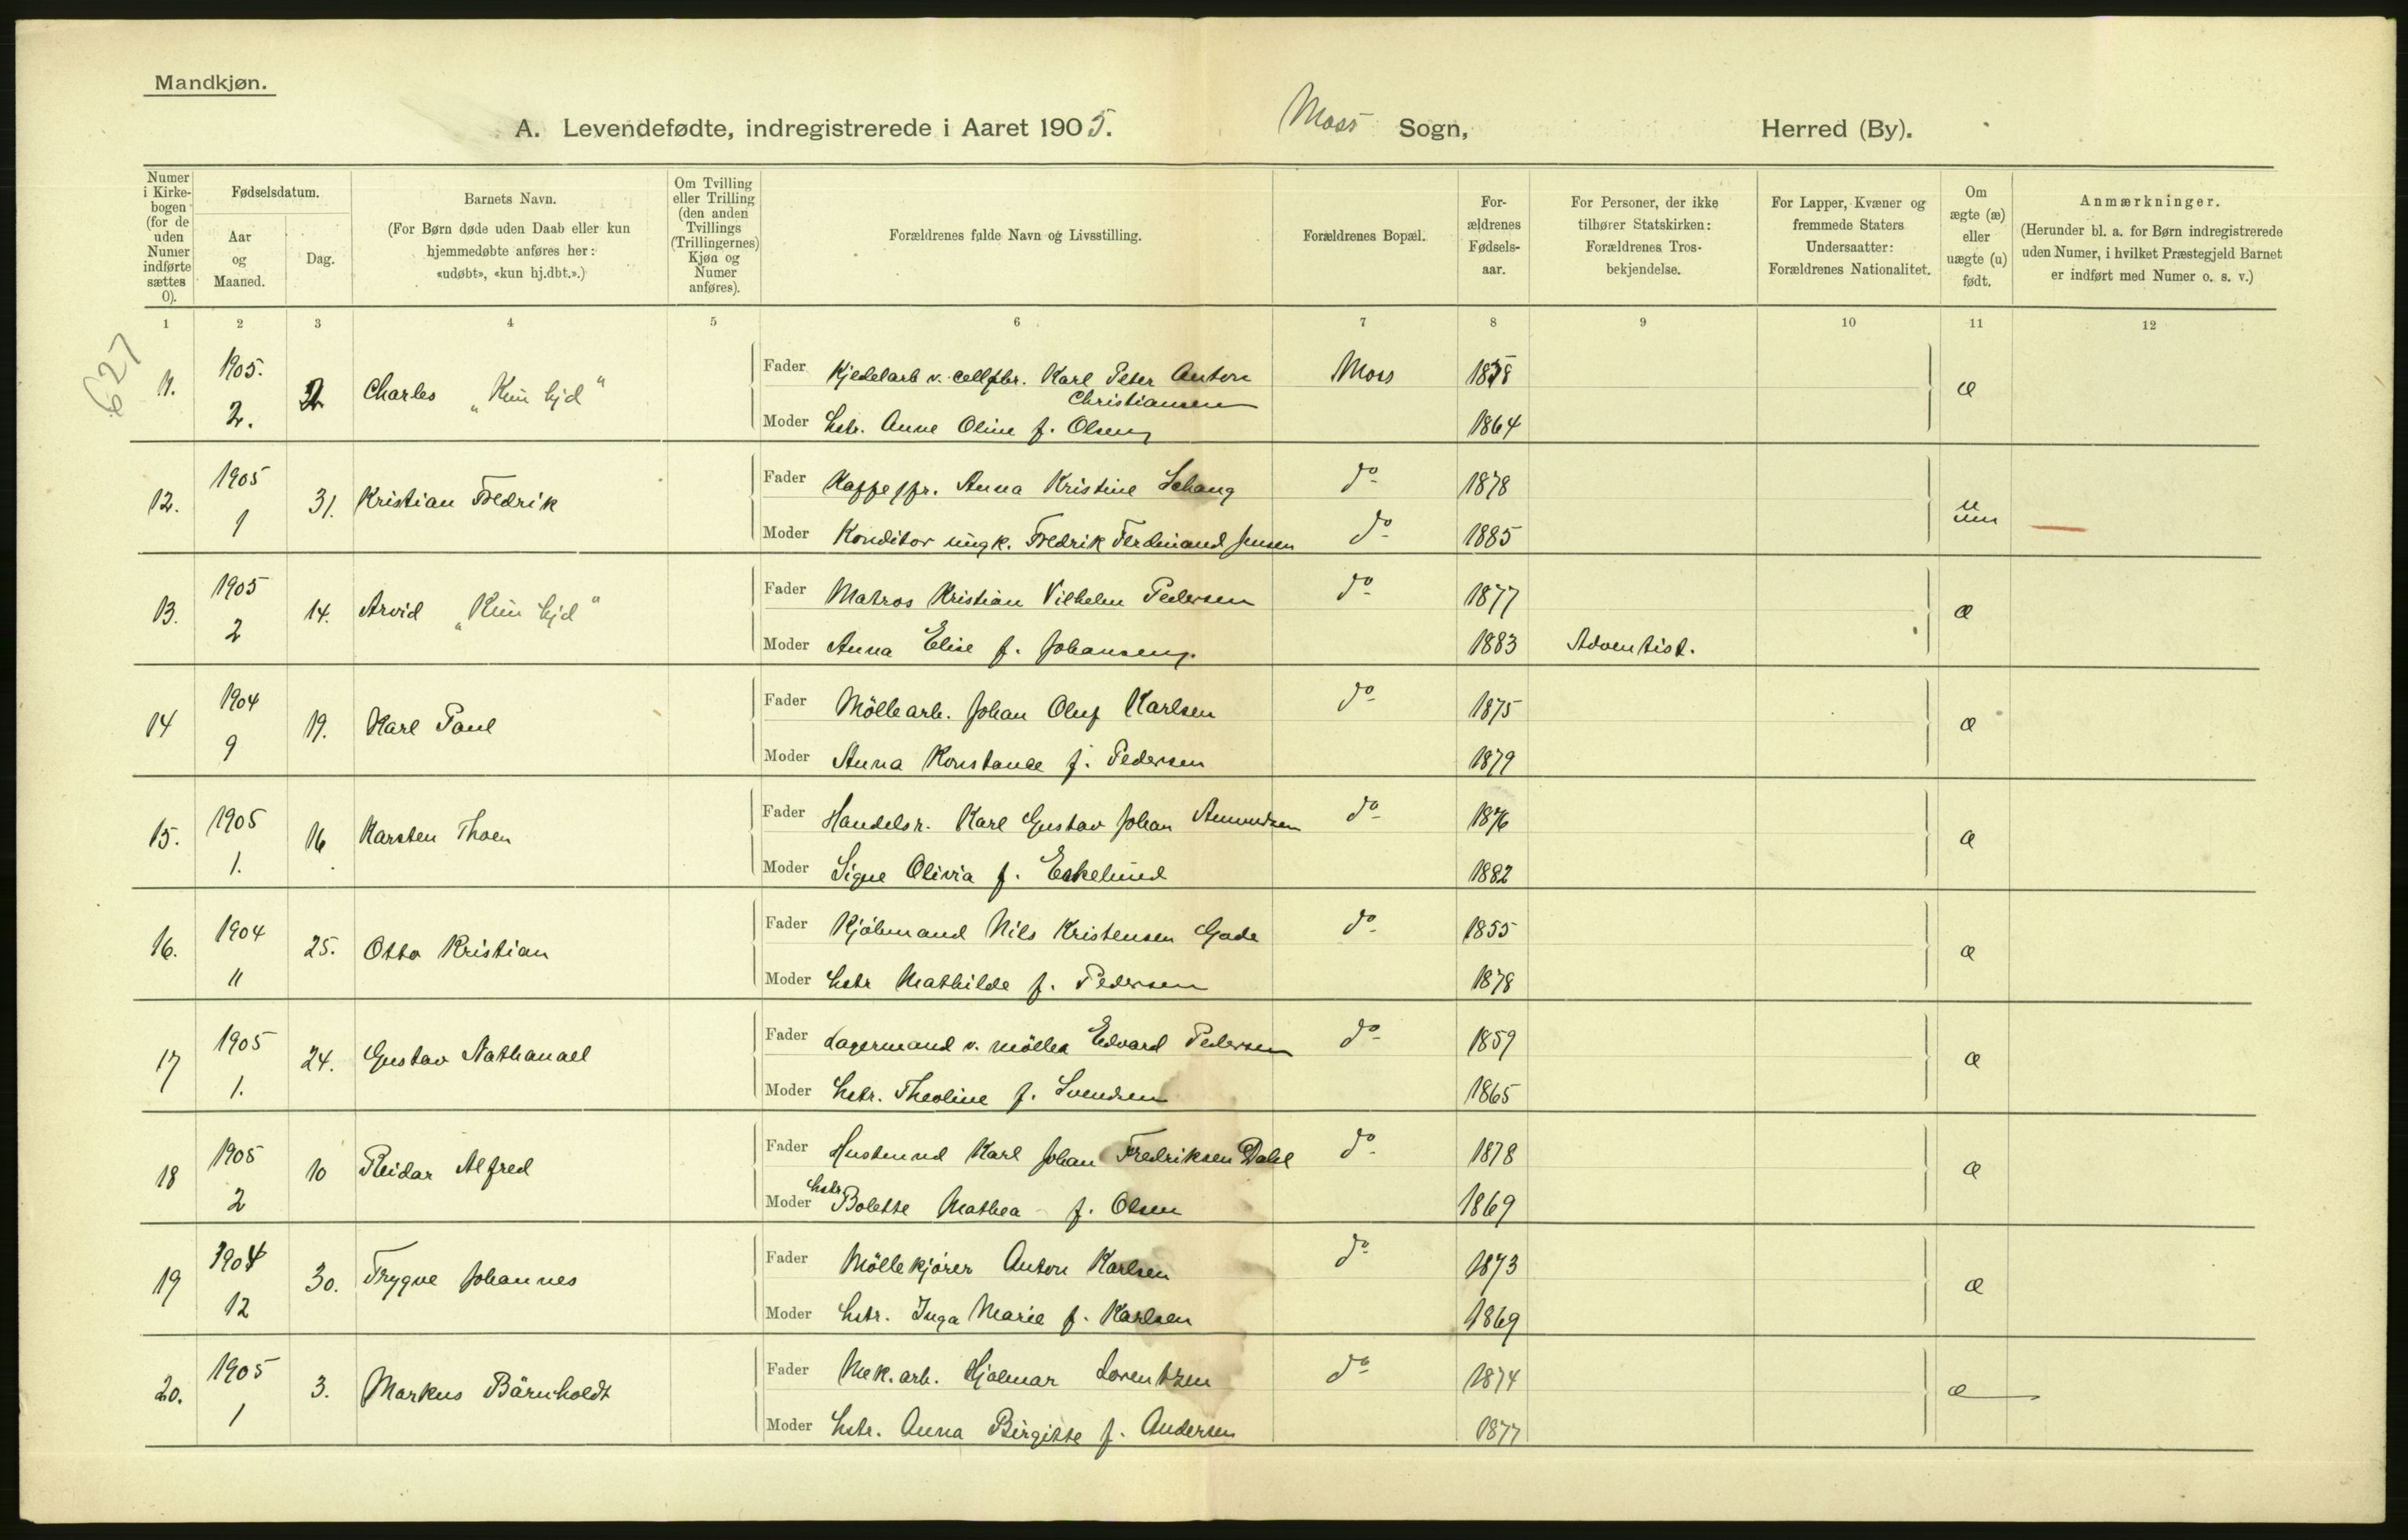 Mandkjøn.
A. Levendefødte, indregistrerede i Aaret 1905. Moss Sogn, Herred (By).
Numer i Kirkebogen (for de uden Numer indførte sættes 0).
Fødselsdatum.
Aar og Maaned.
Dag.
Barnets Navn.
(For Børn døde uden Daab eller kun hjemmedøbte anføres her: «udøbt», «kun hj.dbt.».)
Om Tvilling eller Trilling (den anden Tvillings (Trillingernes) Kjøn og Numer anføres).
Forældrenes fulde Navn og Livsstilling.
Forældrenes Bopæl.
Forældrenes Fødselsaar.
For Personer, der ikke tilhører Statskirken: Forældrenes Trosbekjendelse.
For Lapper, Kvæner og fremmede Staters Undersaatter: Forældrenes Nationalitet.
Om ægte (æ) eller uægte (u) født.
Anmærkninger.
(Herunder bl. a. for Børn indregistrerede uden Numer, i hvilket Præstegjeld Barnet er indført med Numer o. s. v.)
1 2 3 4 5 6 7 8 9 10 11 12
627
11. 1905. 2. 2 Charles "Kun hjd" Fader Kjedelarb v. cellfbr. Karl Peter Anton Christiansen Moss æ
Moder hstr. Anne Oline f. Olsen 1864
12. 1905 1 31. Kristian Fredrik Fader Anna Kristine Schang do 1878
Moder Konditor ungk. Fredrik Ferdinand Jensen do 1885
13. 1905 2 14. Arvid "Kun hjd" Fader Matros Kristian Vilhelm Pedersen do 1877 æ
Moder Anna Elise f. Johansen 1883 Adventist.
14 1904 9 19. Karl Paul Fader Möllearb. Johan Oluf Karlsen do 1875 æ
Moder Anna Konstance f. Pedersen 1879
15. 1905 1. 16 Karsten Thoen Fader Handelsr. Karl Gustav Johan Amundsen do 1876 æ
Moder Signe Olivia f. Eskelund 1882
16. 1904 11 25. Otto Kristian Fader Kjöbmand Nils Kristensen Gade do 1855 æ
Moder hstr Mathilde f. Pedersen 1878
17 1905 1. 24. Gustav Nathanael Fader Lagermand v. möllen Edvard Pedersen do 1859 æ
Moder hstr. Theoline f. Svendsen 1865
18 1905 2 10 Reidar Alfred Fader Karl Johan Fredriksen Dahl do 1878 æ
Moder hstr Bolette Mathea f. Olsen 1869
19 1904 12 30. Trygve Johannes Fader Möllekjörer Anton Karlsen do 1873 æ
Moder hstr. Inga Marie f. Karlsen 1869
20. 1905 1 3. Markus Bärnholdt Fader Mek. arb. Hjalmar Lorentzen do 1874 æ
Moder hstr. Anna Birgitte f. Andersen 1877